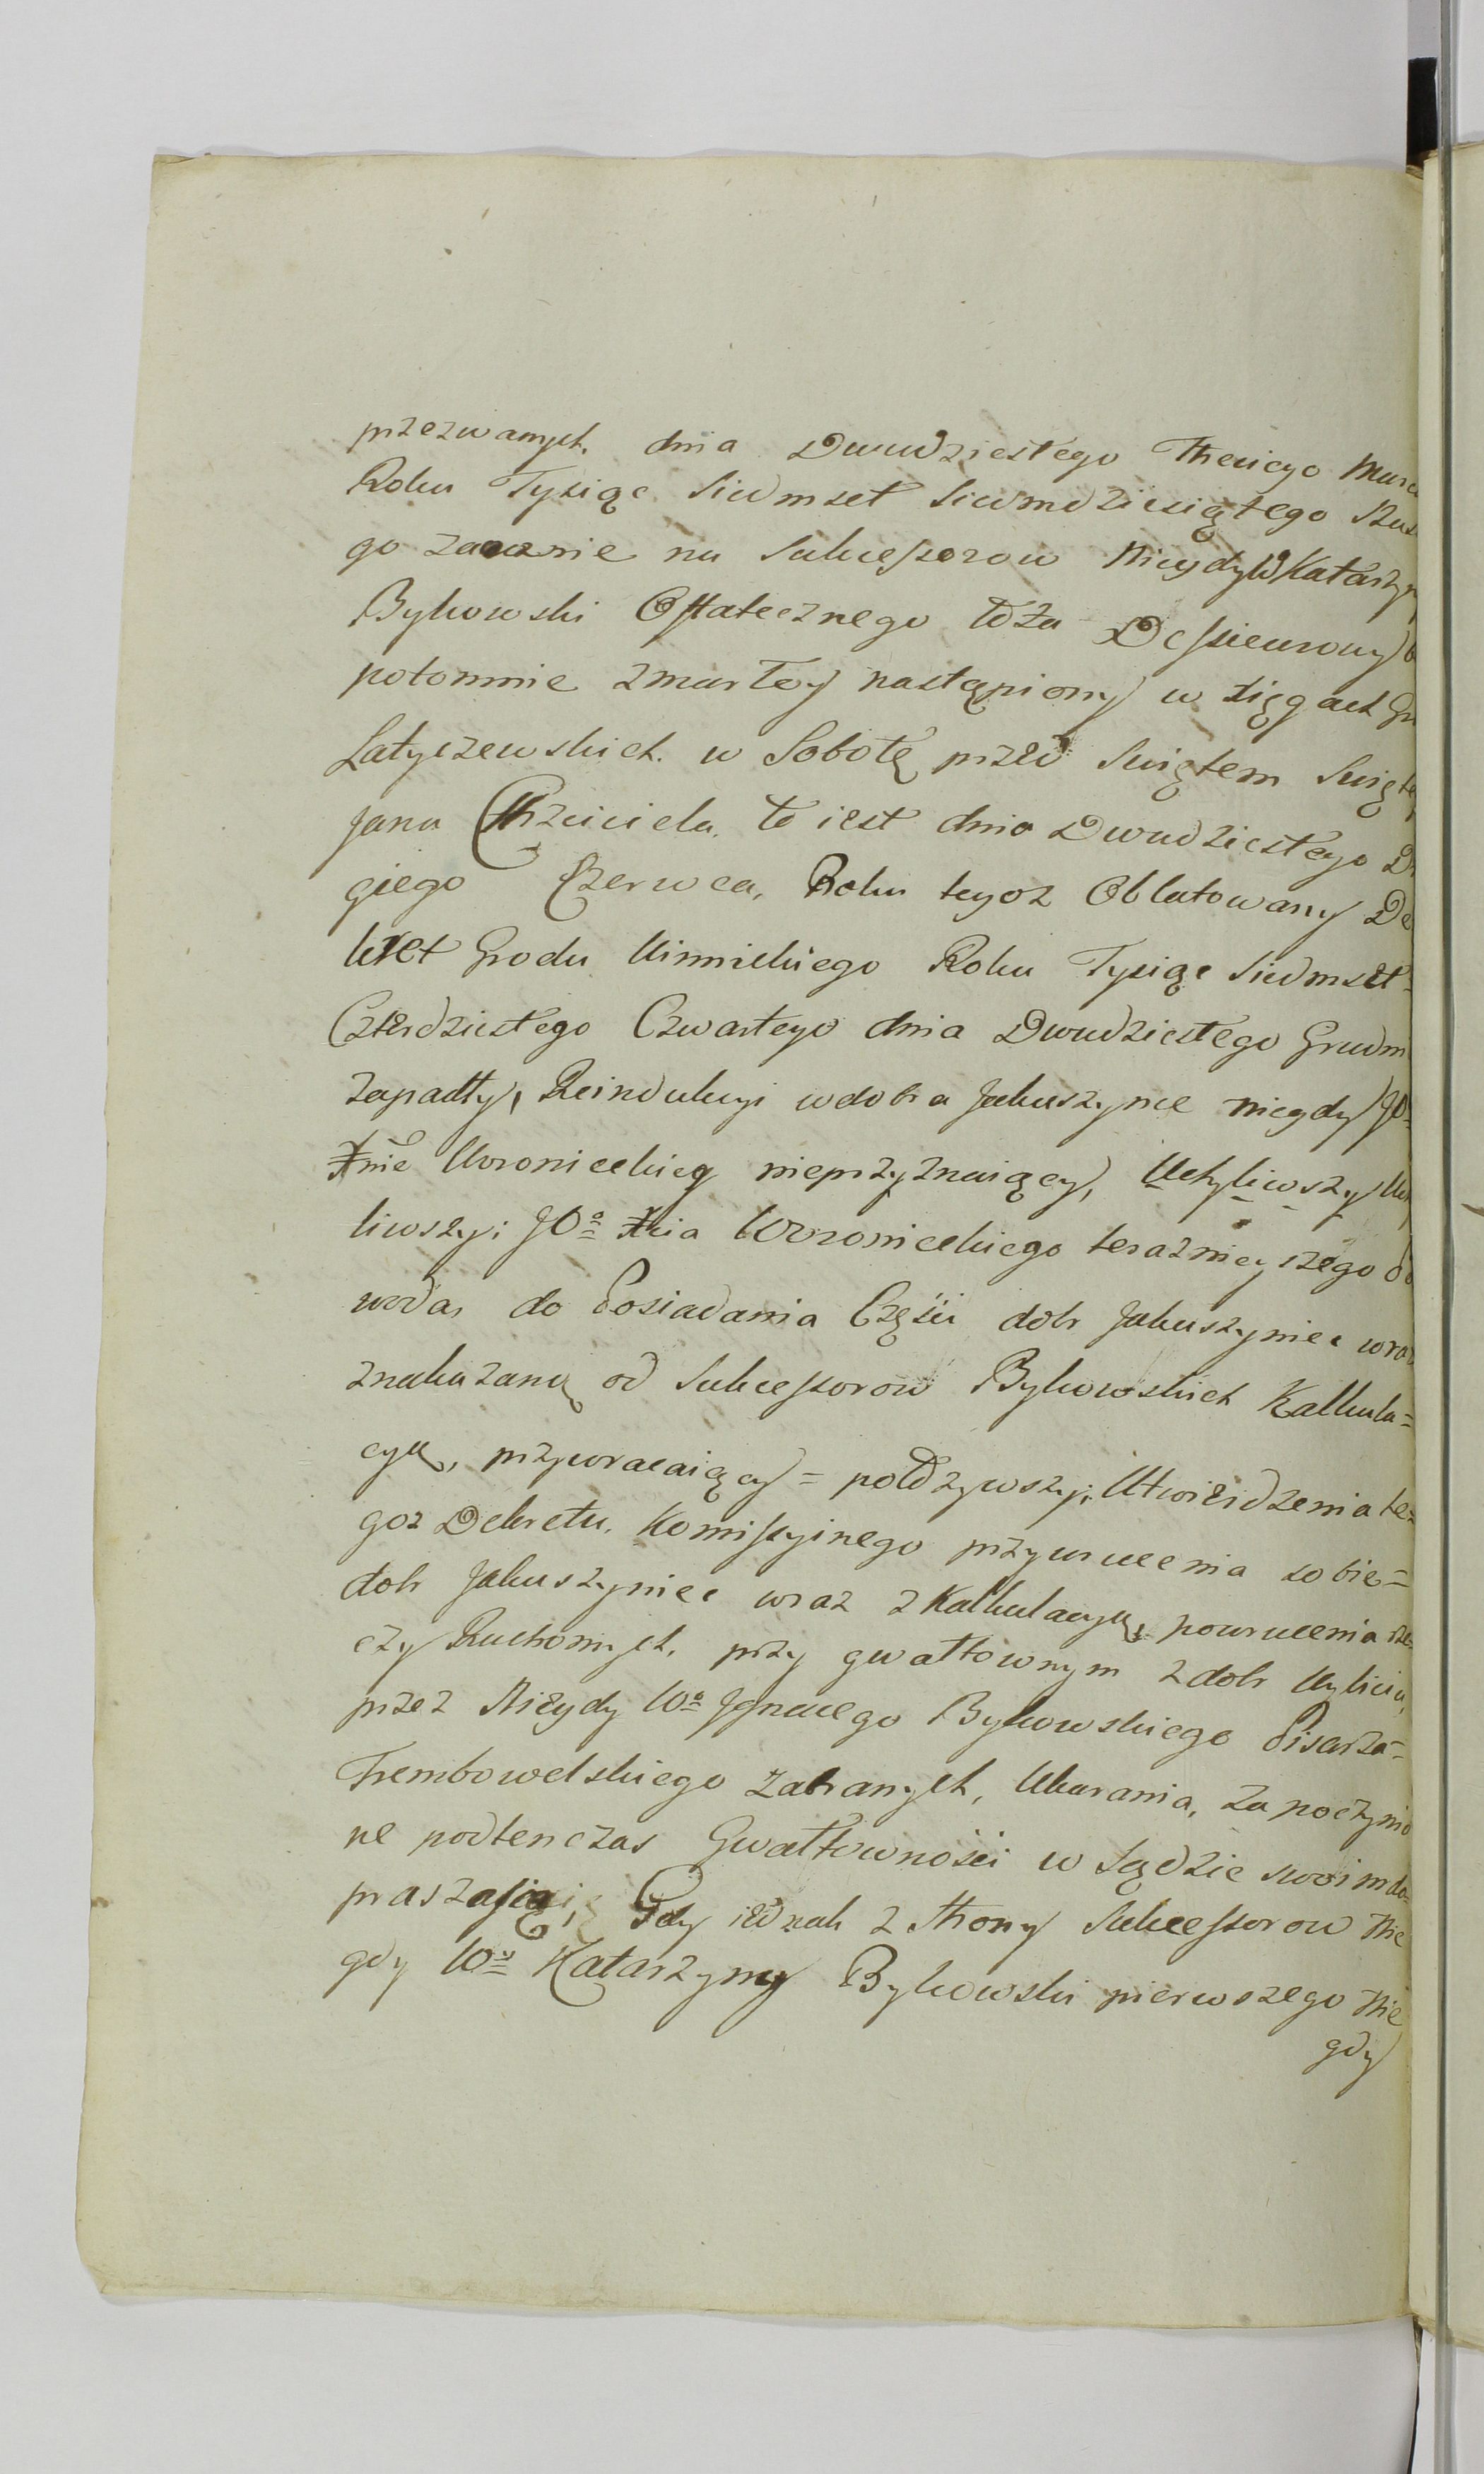 przezwanych. dnia Dwudziestego Trzeciego Marca
Roku Tysiąc Siedmset Siedmdziesiątego Szus
go zaocznie na Sukcessorow Niegdy W Katarzyn
Bykowski Ostatecznego łoża Dessieurowy
potomnie zmarłey nastąpiony w xięgach Gr
Latyczewskich. w Sobotę przed Swiętem Swięte
Jana Chrzciciela. to iest dnia Dwudziestego Dr
giego Czerwca, Roku tegoż Oblatowany De
kret Grodu Winnickiego Roku Tysiąc Siedmset=
Czterdziestego Czwartego dnia Dwudziestego Grudni
zapadły, Reindukcyi w dobra Jakuszynce niegdy JO=
Xnie Woronieckiey nieprzyznaiący, Uchyliwszy Uch
liwszy; JOº Xcia Woronieckiego teraznieyszego do
woda, do Posiadania Części dobr Jakuszyniec wraz
znakazaną od Sukcessorow Bykowskich Kalkula=
cyą, przywracaiący = potdzywszy; Utwierdzenia te=
goz Dekretu. Komissyinego przywrucenia sobie=
dobr Jakuszyniec wraz z Kalkulacyą, powrucenia rze=
czy Ruchomych. przy gwałtownym z dobr Wybiciu,
przez Niegdy Wº Jgnacego Bykowskiego Pisarza=
Trembowelskiego zabranych, Ukarania, za poczynio
ne podtenczas Gwałtowności w Sądzie swoim do=
praszaiąci, Gdy iednak z strony Sukcessorow Nie
gdy Wy Katarzyny Bykowski pierwszego Nie
gdy